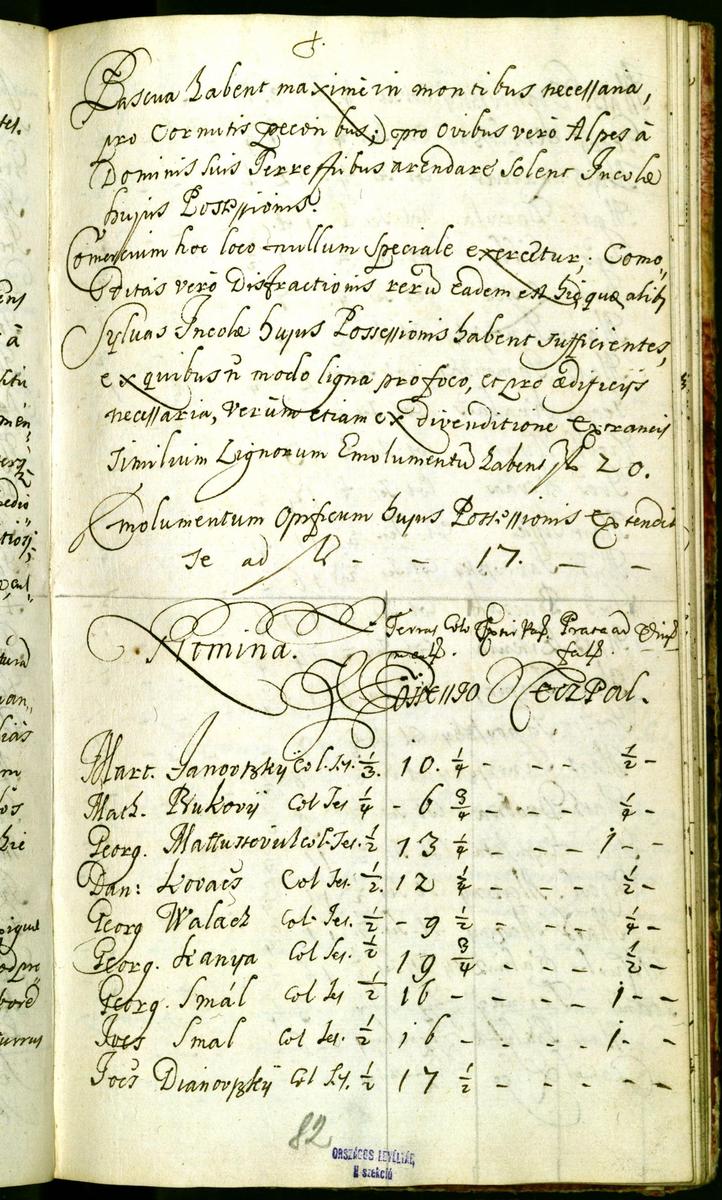 8.
Pascua habent maximè in montibus necessaria,
pro Cornutis pecoribus; pro Ovibus verò Alpes à
Dominis suis Terrestribus arendare solent Incolæ
hujus Possessionis.
Comercium hoc loco nullum speciale exercetur; Como,,
ditas verò Distractionis rerū eadem est hic quæ alibi
Sylvas Incolæ hujus Possessionis habent sufficientes,
ex quibus ñ modo ligna pro foco, et pro ædificijs
necessaria, verùm etiam ex divenditione extraneis
similium Lignorum Emolumentū habent fl 20.
Emolumentum Opificum hujus Possessionis extendit
se ad fl - - 17. - -
Nomina. Terras Prata ad
falc.
Possessio Neczpal.
Mart. Janovszkÿ Col. Ses. 1/3. 10. 1/4 - - - 1/2 -
Math. Bukovij Col Ses 1/4 - 6 3/4 - - - 1/4 -
Georg. Col. Ses. 1/2 13 1/4 - - - 1 - -
Dan: Kovacs Col Ses. 1/2. 12 3/4 - - - 1/2 -
Georg Walach Col. Ses. 1/2 - 9 1/2 - - - 1/4 -
Georg. Kanya Col Ses. 1/2 19 3/4 - - - 1/2 -
Georg. Smál Col Ses 1/2 16 - - - - 1 - -
Joes Smal Col Ses. 1/2 16 - - - - 1 - -
Joes Dianovszkÿ Col Ses. 1/2 17 1/2 - - - - - -
82
ORSZÁGOS LEVÉLTÁR,
II szekció